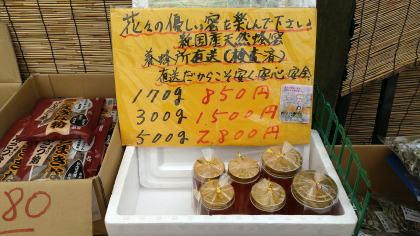 花々の優しい蜜を楽しんで下さいね
純国産天然蜂蜜
養蜂所直送(検査済)
直送だからこそ安く安心安全
170g 850円
300g 1,500円
500g 2,800円
80